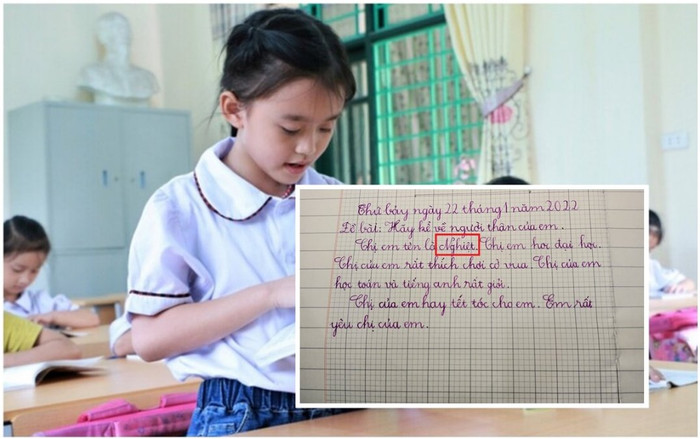 Thứ bảy ngày 22 tháng 1 năm 2022
Đề bài: Hãy kể về người thân của em.
Chị em tên là Nghiệt. Chị em học đại học.
Chị của em rất thích chơi cờ vua. Chị của em
học toán và tiếng anh rất giỏi.
Chị của em hay tết tóc cho em. Em rất
yêu chị của em.